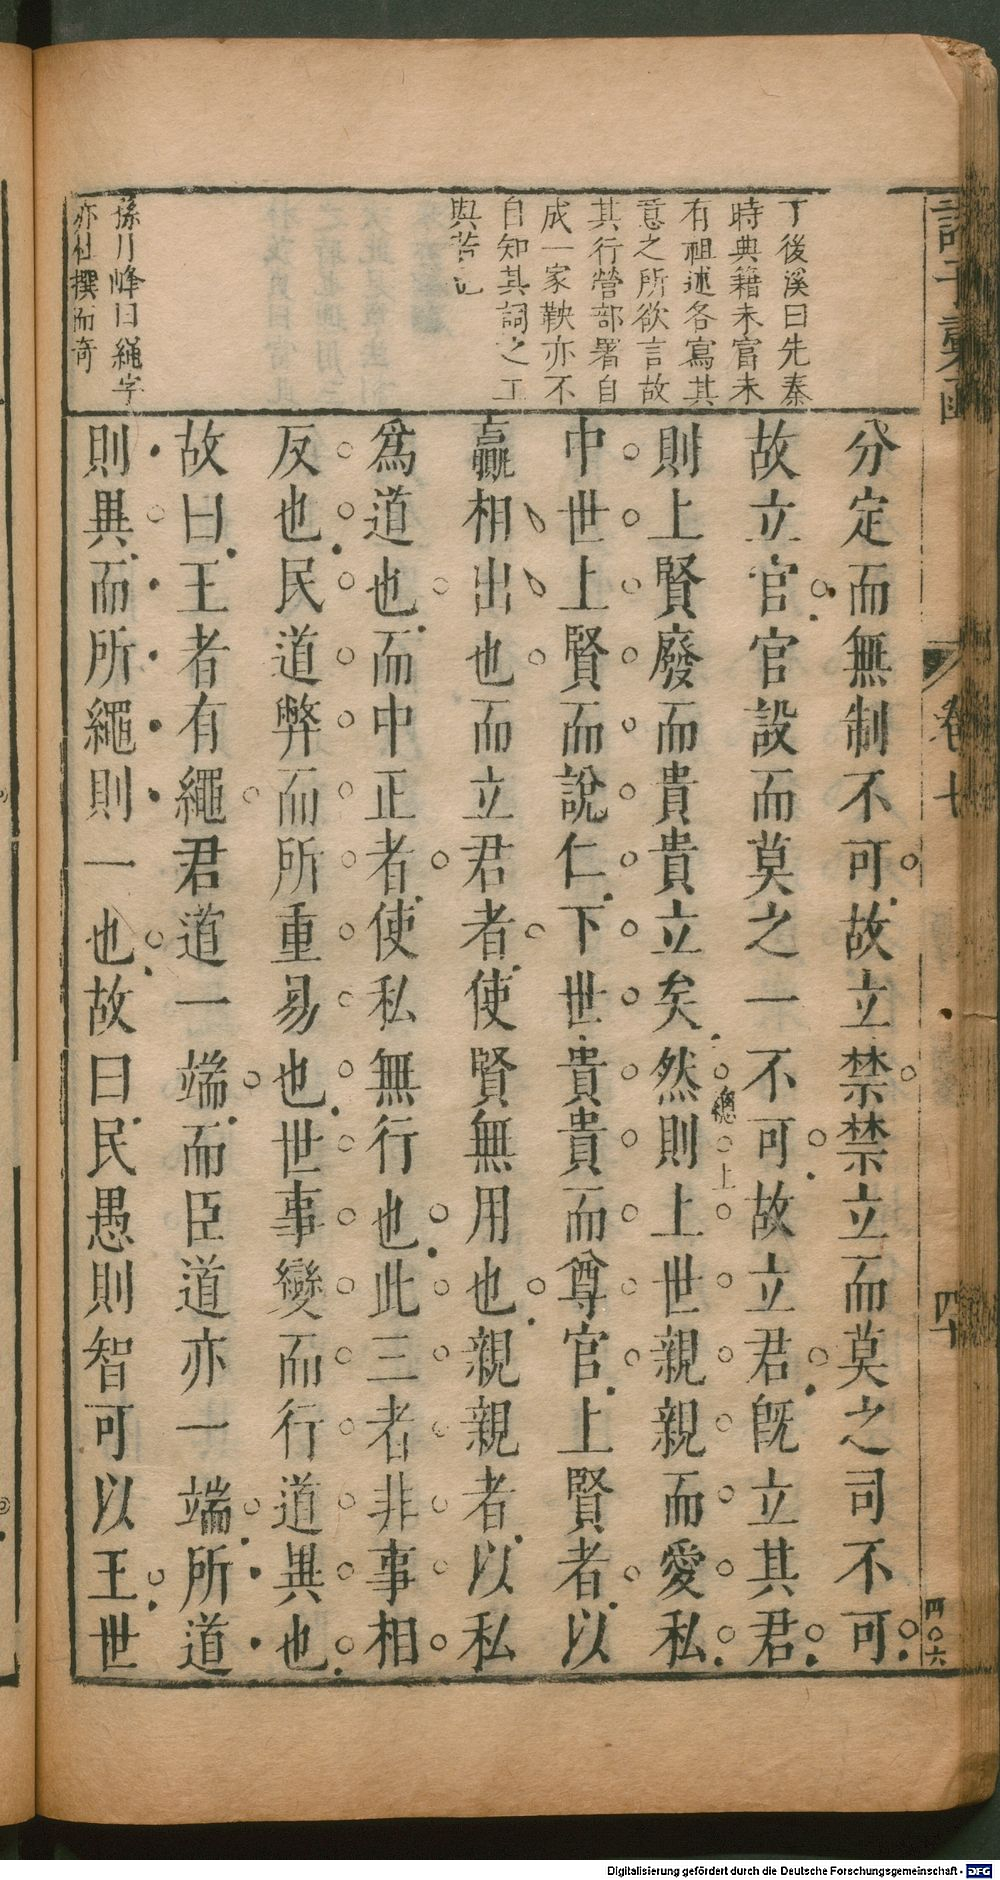 諸子彙函
卷七
四十
四〇六
丁後溪曰先秦
時典籍未官未
有祖述各寫其
意之所欲言故
其行營部署自
成一家鞅亦不
自知其詞之工
與苦也
孫月峰曰繩字
亦杜撰而奇
分定而無制不可故立禁禁立而莫之司不可
故立官官設而莫之一不可故立君旣立其君
則上賢廢而貴貴立矣然則上世親親而愛私
總上
中世上賢而說仁下世貴貴而尊官上賢者以
贏相出也而立君者使賢無用也親親者以私
爲道也而中正者使私無行也此三者非事相
反也民道弊而所重易也世事變而行道異也
故曰王者有繩君道一端而臣道亦一端所道
則異而所繩則一也故曰民愚則智可以王世
Digitalisierung gefördert durch die Deutsche Forschungsgemeinschaft - DFG